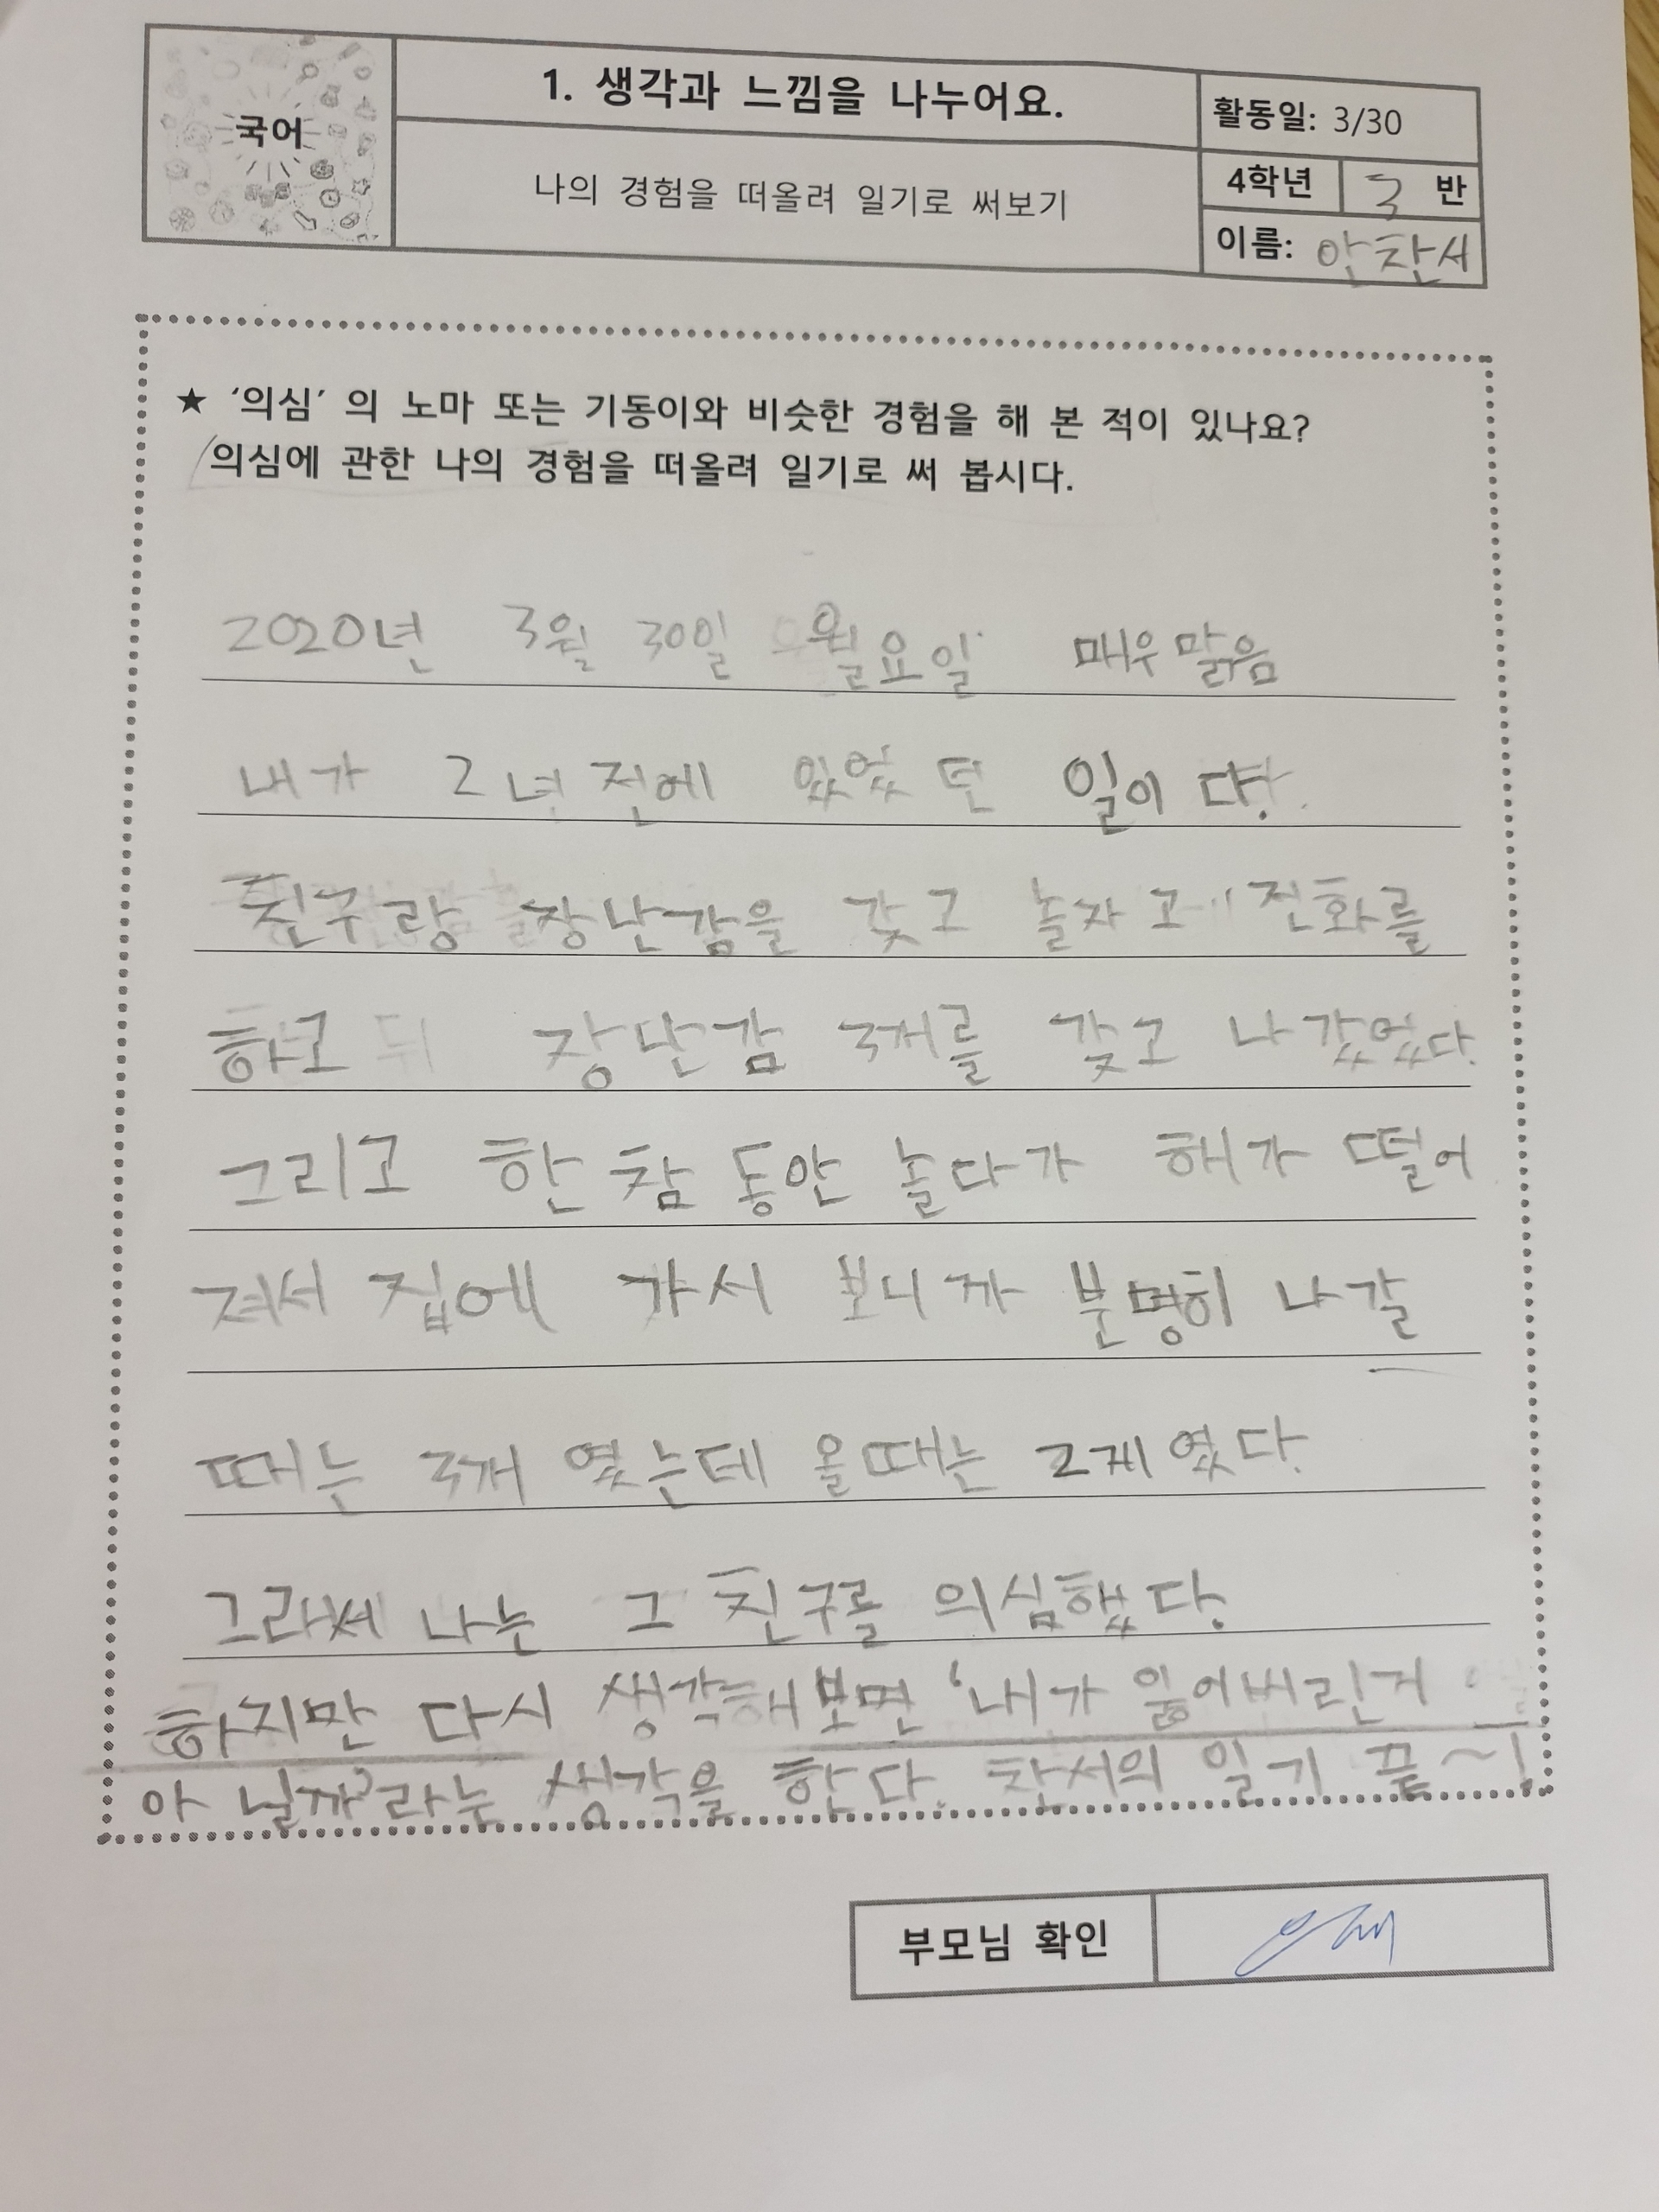 국어
1. 생각과 느낌을 나누어요.
나의 경험을 떠올려 일기로 써보기
활동일: 3/30
4학년 3 반
이름: 안찬서
★ '의심' 의 노마 또는 기동이와 비슷한 경험을 해 본 적이 있나요?
의심에 관한 나의 경험을 떠올려 일기로 써 봅시다.
2020년 3월 30일 월요일 매우맑음
내가 2년전에 있었던 일이다.
친구랑 장난감을 갖고 놀자고 전화를
하고 뒤 장난감 3개를 갖고 나갔었다.
그리고 한참동안 놀다가 해가 떨어
져서 집에 가서 보니까 분명히 나갈
때는 3개 였는데 올때는 2개였다.
그래서 나는 그 친구를 의심했다.
하지만 다시 생각해보면 '내가 잃어버린거
아닐까'라는 생각을 한다. 찬서의 일기 끝~!
부모님 확인